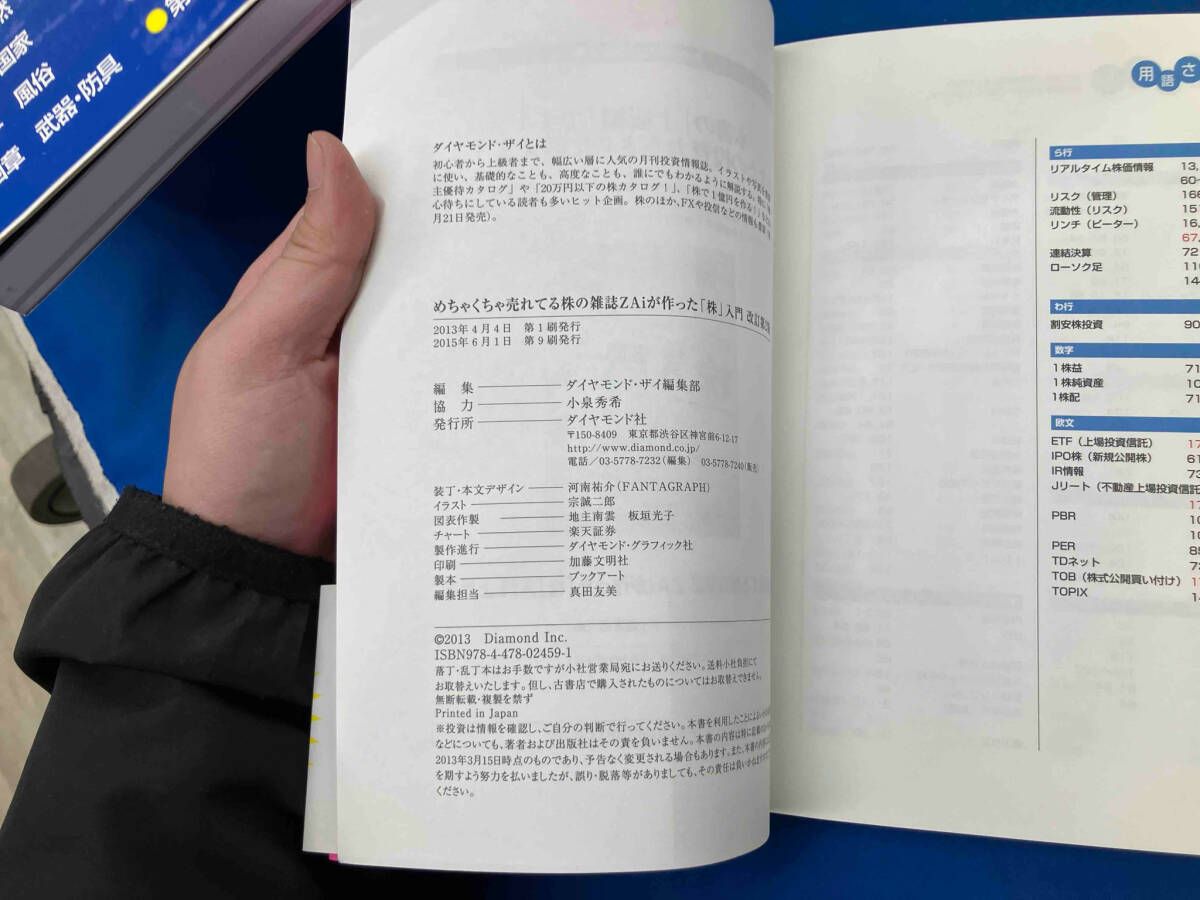 国家
風俗
武器・防具
章
ダイヤモンド・ザイとは
初心者から上級者まで、幅広い層に人気の月刊投資情報誌。イラストや
に使い、基礎的なことも、高度なことも、誰にでもわかるように解説する。
主優待カタログ」や「20万円以下の株カタログ!」、「株で1億円を作る!」
心待ちにしている読者も多いヒット企画。株のほか、FXや投信などの情報も
月21日発売)。
めちゃくちゃ売れてる株の雑誌ZAiが作った「株」入門 改訂第2版
2013年4月4日 第1刷発行
2015年6月1日 第9刷発行
編集 ダイヤモンド・ザイ編集部
協力 小泉秀希
発行所 ダイヤモンド社
〒150-8409 東京都渋谷区神宮前6-12-17
http://www.diamond.co.jp/
電話/03-5778-7232(編集) 03-5778-7240(販売)
装丁・本文デザイン 河南祐介(FANTAGRAPH)
イラスト 宗誠二郎
図表作製 地主南雲 板垣光子
チャート 楽天証券
製作進行 ダイヤモンド・グラフィック社
印刷 加藤文明社
製本 ブックアート
編集担当 真田友美
©2013 Diamond Inc.
ISBN978-4-478-02459-1
落丁・乱丁本はお手数ですが小社営業局宛にお送りください。送料小社負担にて
お取替えいたします。但し、古書店で購入されたものについてはお取替えできません。
無断転載・複製を禁ず
Printed in Japan
※投資は情報を確認し、ご自分の判断で行ってください。本書を利用したことによる
などについても、著者および出版社はその責を負いません。本書の内容は特に記載の
2013年3月15日時点のものであり、予告なく変更される場合もあります。また、本書の内容に
を期すよう努力を払いましたが、誤り・脱落等がありましても、その責任は負いかねます
ください。
用語さ
ら行
リアルタイム株価情報 13,
60-
リスク(管理) 166
流動性(リスク) 15
リンチ(ピーター) 16,
67,
連結決算 72
ローソク足 11
14
わ行
割安株投資 90
数字
1株益 71
1株純資産 10
1株配 71
欧文
ETF(上場投資信託) 17
IPO株(新規公開株) 61
IR情報 73
Jリート(不動産上場投資信託
17
PBR 10
10
PER 85
TDネット 73
TOB(株式公開買い付け) 1
TOPIX 14